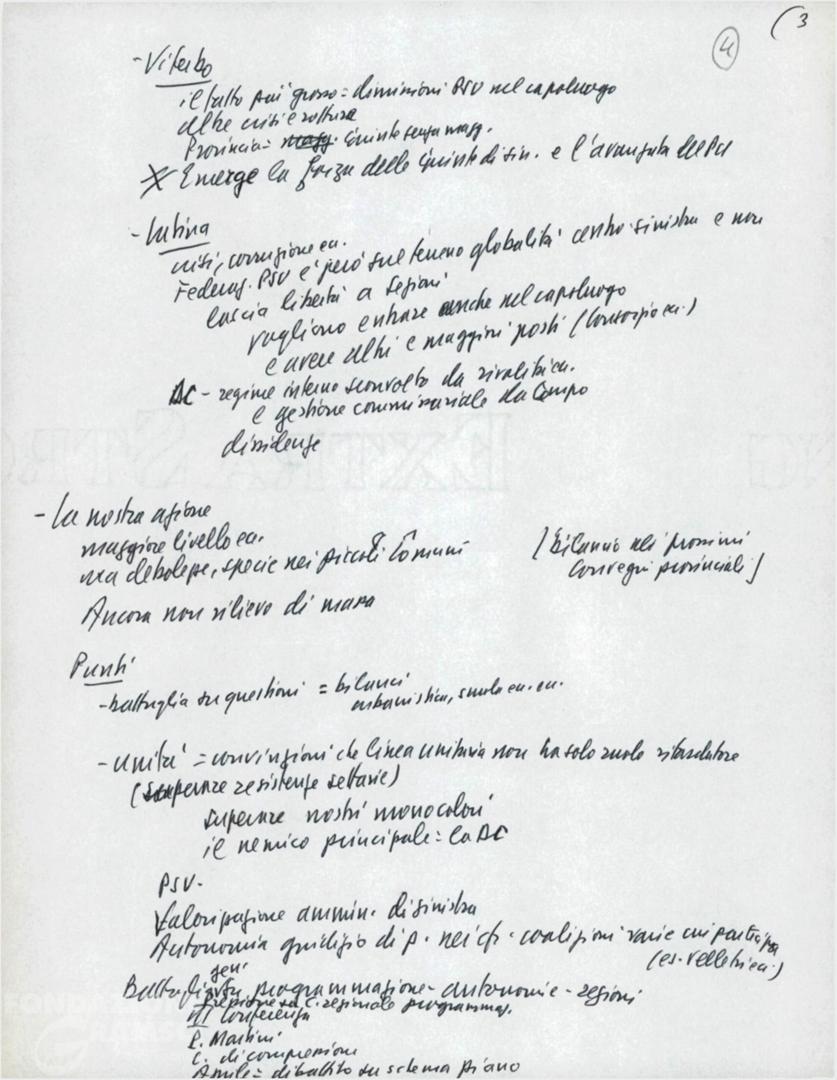 (3
4
- Viterbo
il fatto più grosso = dimissioni PSU nel capoluogo
altre crisi e rotture
Provincia = magg. Giunta senza magg.
X Emerge la forza delle Giunte di sin. e l'avanzata del PCI
- Latina
crisi, corruzione ecc.
Federaz. PSU è però sul terreno globalità centro-sinistra e non
lascia libertà a sezioni
vogliono entrare anche nel capoluogo
e avere altri e maggiori posti (Consorzio ecc.)
DC - regime interno sconvolto da rivalità ecc.
e gestione commissariale da tempo
dissidenze
EXTRA STR
- La nostra azione
maggiore livello ecc.
ma debolezze, specie nei piccoli Comuni
[bilancio nei prossimi
Convegni provinciali]
Ancora non rilievo di massa
Punti
- battaglia su questioni = bilanci
urbanistica, scuola ecc. ecc.
- unità = convinzioni che linea unitaria non ha solo ruolo
(superare resistenze settarie)
superare nostri monocolori
il nemico principale = la DC
PSU.
Valorizzazione ammin. di sinistra
Autonomia giudizio di p. nei cfr. coalizioni varie cui partecipa
(es. Velletri ecc.)
gen.
Battaglia su programmazione - autonomie - regioni
C. regionale programmaz.
III Conferenza
P. Martini
C. di comprensori
Aprile = dibattito su schema piano
FONDAZIONE
GRAMSCI